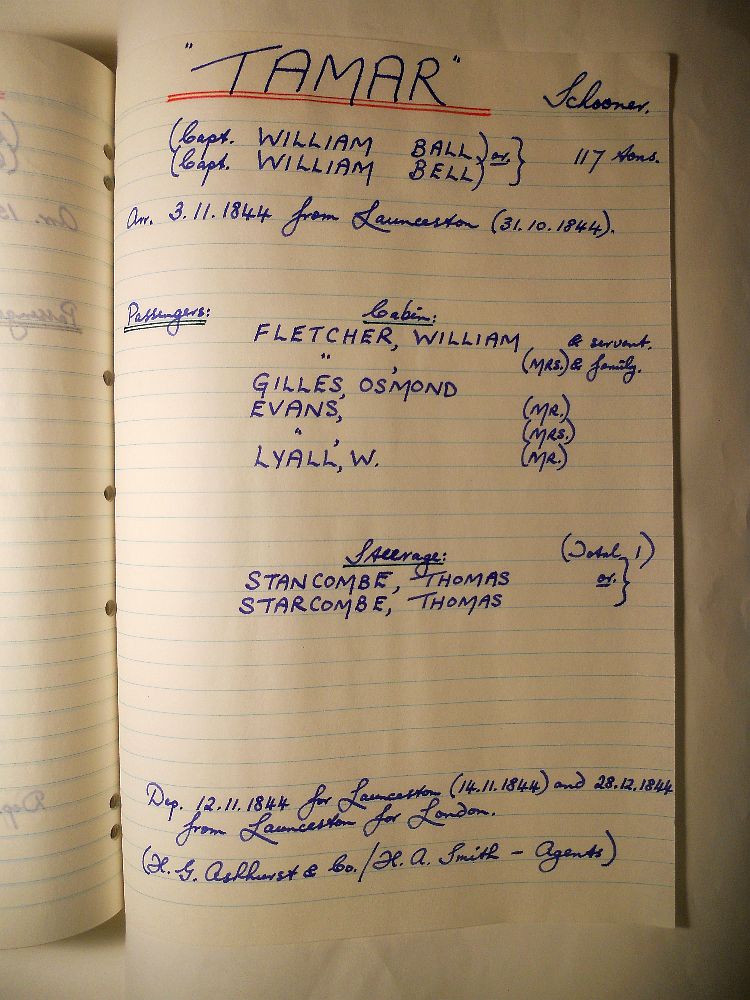 "TAMAR" Schooner.
(Capt. WILLIAM BALL) or. } 117 tons.
(Capt. WILLIAM BELL)
Arr. 3.11.1844 from Launceston (31.10.1844).
Passengers: Cabin:
FLETCHER, WILLIAM & servant.
" , (MRS.) & family.
GILLES, OSMOND
EVANS, (MR.)
" , (MRS.)
LYALL, W. (MR.)
Steerage: (Total 1)
STANCOMBE, THOMAS or. }
STARCOMBE, THOMAS
Dep. 12.11.1844 for Launceston (14.11.1844) and 28.12.1844
from Launceston for London.
(H. G. Ashhurst & Co. / H. A. Smith - Agents)